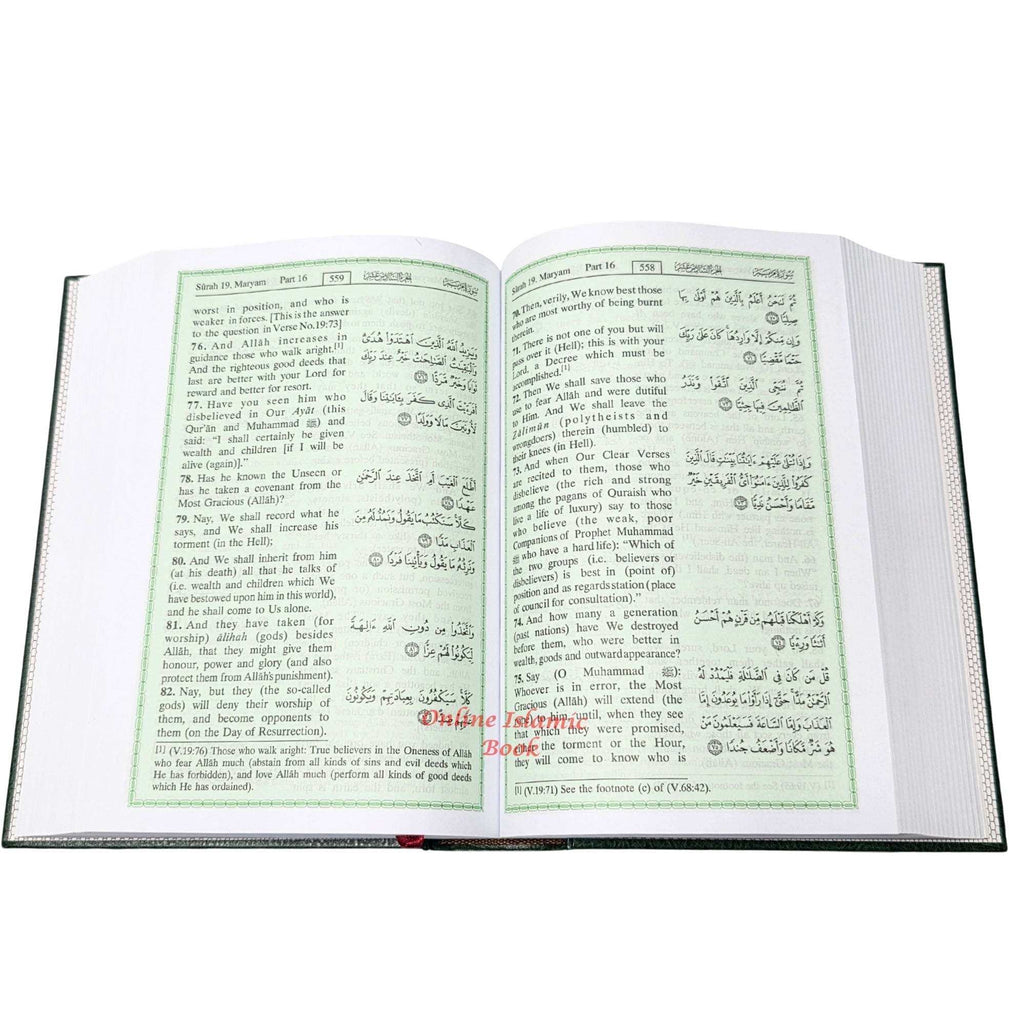 Sûrah 19. Maryam Part 16 558 الجزء السادس عشر سورة مريم
70. Then, verily, We know best those
who are most worthy of being burnt
therein.
71. There is not one of you but will
pass over it (Hell); this is with your
Lord, a Decree which must be
accomplished.[1]
72. Then We shall save those who
use to fear Allâh and were dutiful
to Him. And We shall leave the
Zâlimûn (polytheists and
wrongdoers) therein (humbled) to
their knees (in Hell).
73. And when Our Clear Verses
are recited to them, those who
disbelieve (the rich and strong
among the pagans of Quraish who
live a life of luxury) say to those
who believe (the weak, poor
Companions of Prophet Muhammad
ﷺ who have a hard life): “Which of
the two groups (i.e. believers or
disbelievers) is best in (point of)
position and as regards station (place
of council for consultation).”
74. And how many a generation
(past nations) have We destroyed
before them, who were better in
wealth, goods and outward appearance?
75. Say (O Muhammad ﷺ):
Whoever is in error, the Most
Gracious (Allâh) will extend (the
rope) to him, until, when they see
that which they were promised,
either the torment or the Hour,
they will come to know who is
ثُمَّ لَنَحْنُ أَعْلَمُ بِٱلَّذِينَ هُمْ أَوْلَىٰ بِهَا
صِلِيًّا ٧٠
وَإِن مِّنكُمْ إِلَّا وَارِدُهَا كَانَ عَلَىٰ رَبِّكَ
حَتْمًا مَّقْضِيًّا ٧١
ثُمَّ نُنَجِّي ٱلَّذِينَ ٱتَّقَوا۟ وَّنَذَرُ
ٱلظَّٰلِمِينَ فِيهَا جِثِيًّا ٧٢
وَإِذَا تُتْلَىٰ عَلَيْهِمْ ءَايَٰتُنَا بَيِّنَٰتٍ قَالَ ٱلَّذِينَ
كَفَرُوا۟ لِلَّذِينَ ءَامَنُوٓا۟ أَىُّ ٱلْفَرِيقَيْنِ خَيْرٌ
مَّقَامًا وَأَحْسَنُ نَدِيًّا ٧٣
وَكَمْ أَهْلَكْنَا قَبْلَهُم مِّن قَرْنٍ هُمْ أَحْسَنُ
أَثَٰثًا وَرِءْيًا ٧٤
قُلْ مَن كَانَ فِى ٱلضَّلَٰلَةِ فَلْيَمْدُدْ لَهُ
ٱلرَّحْمَٰنُ مَدًّا حَتَّىٰٓ إِذَا رَأَوْا۟ مَا يُوعَدُونَ إِمَّا
ٱلْعَذَابَ وَإِمَّا ٱلسَّاعَةَ فَسَيَعْلَمُونَ مَنْ
هُوَ شَرٌّ مَّكَانًا وَأَضْعَفُ جُندًا ٧٥
[1] (V.19:71) See the footnote (c) of (V.68:42).
Sûrah 19. Maryam Part 16 559 الجزء السادس عشر سورة مريم
worst in position, and who is
weaker in forces. [This is the answer
to the question in Verse No.19:73]
76. And Allâh increases in
guidance those who walk aright.[1]
And the righteous good deeds that
last are better with your Lord for
reward and better for resort.
77. Have you seen him who
disbelieved in Our Ayât (this
Qur’ân and Muhammad ﷺ) and
said: “I shall certainly be given
wealth and children [if I will be
alive (again)].”
78. Has he known the Unseen or
has he taken a covenant from the
Most Gracious (Allâh)?
79. Nay, We shall record what he
says, and We shall increase his
torment (in the Hell);
80. And We shall inherit from him
(at his death) all that he talks of
(i.e. wealth and children which We
have bestowed upon him in this world),
and he shall come to Us alone.
81. And they have taken (for
worship) âlihah (gods) besides
Allâh, that they might give them
honour, power and glory (and also
protect them from Allâh's punishment).
82. Nay, but they (the so-called
gods) will deny their worship of
them, and become opponents to
them (on the Day of Resurrection).
وَيَزِيدُ ٱللَّهُ ٱلَّذِينَ ٱهْتَدَوْا۟ هُدًى
وَٱلْبَٰقِيَٰتُ ٱلصَّٰلِحَٰتُ خَيْرٌ عِندَ رَبِّكَ
ثَوَابًا وَخَيْرٌ مَّرَدًّا ٧٦
أَفَرَءَيْتَ ٱلَّذِى كَفَرَ بِـَٔايَٰتِنَا وَقَالَ
لَأُوتَيَنَّ مَالًا وَوَلَدًا ٧٧
أَطَّلَعَ ٱلْغَيْبَ أَمِ ٱتَّخَذَ عِندَ ٱلرَّحْمَٰنِ
عَهْدًا ٧٨
كَلَّا سَنَكْتُبُ مَا يَقُولُ وَنَمُدُّ لَهُۥ مِنَ
ٱلْعَذَابِ مَدًّا ٧٩
وَنَرِثُهُۥ مَا يَقُولُ وَيَأْتِينَا فَرْدًا ٨٠
وَٱتَّخَذُوا۟ مِن دُونِ ٱللَّهِ ءَالِهَةً
لِّيَكُونُوا۟ لَهُمْ عِزًّا ٨١
كَلَّا سَيَكْفُرُونَ بِعِبَادَتِهِمْ وَيَكُونُونَ
[1] (V.19:76) Those who walk aright: True believers in the Oneness of Allâh
who fear Allâh much (abstain from all kinds of sins and evil deeds which
He has forbidden), and love Allâh much (perform all kinds of good deeds
which He has ordained).
Online Islamic
Book